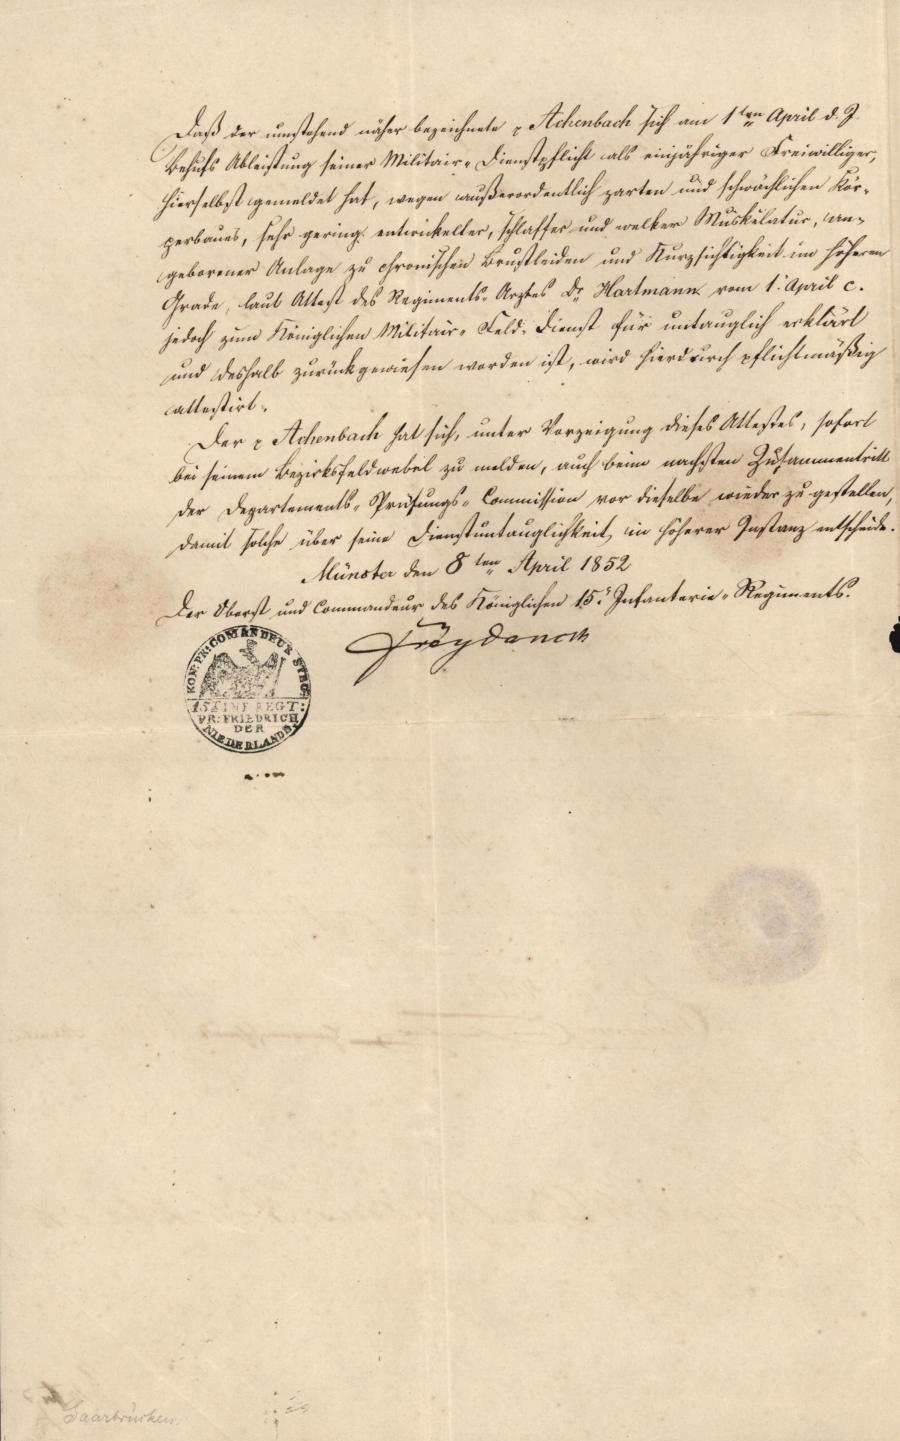 Daß der umstehend näher bezeichnete p Achenbach sich am 1ten April d. J.
Behufs Ableistung seiner Militair-Dienstpflicht als einjähriger Freiwilliger,
hierselbst gemeldet hat, wegen außerordentlich zarten und schwächlichen Kör-
perbaues, sehr gering entwickelter, schlaffer und welker Muskulatur, an-
geborener Anlage zu chronischen Brustleiden und Kurzsichtigkeit im höheren
Grade, laut Attest des Regiments-Arztes Dr Hartmann vom 1. April c.
jedoch zum Königlichen Militair-Feld-Dienst für untauglich erklärt
und deshalb zurückgewiesen worden ist, wird hierdurch pflichtmäßig
attestirt.
Der p Achenbach hat sich, unter Vorzeigung dieses Attestes, sofort
bei seinem Bezirksfeldwebel zu melden, auch beim nächsten Zusammentritt
der Departements-Prüfungs-Commission vor dieselbe wieder zu gestellen,
damit solche über seine Dienstuntauglichkeit in höherer Instanz entscheide.
Münster den 8ten April 1852
Der Oberst und Commandeur des Königlichen 15. Infanterie-Regiments.
KÖN: PR: COMANDEUR
15t INF REGT:
PR: FRIEDRICH
DER
NIEDERLANDE.
Saarbrücken.